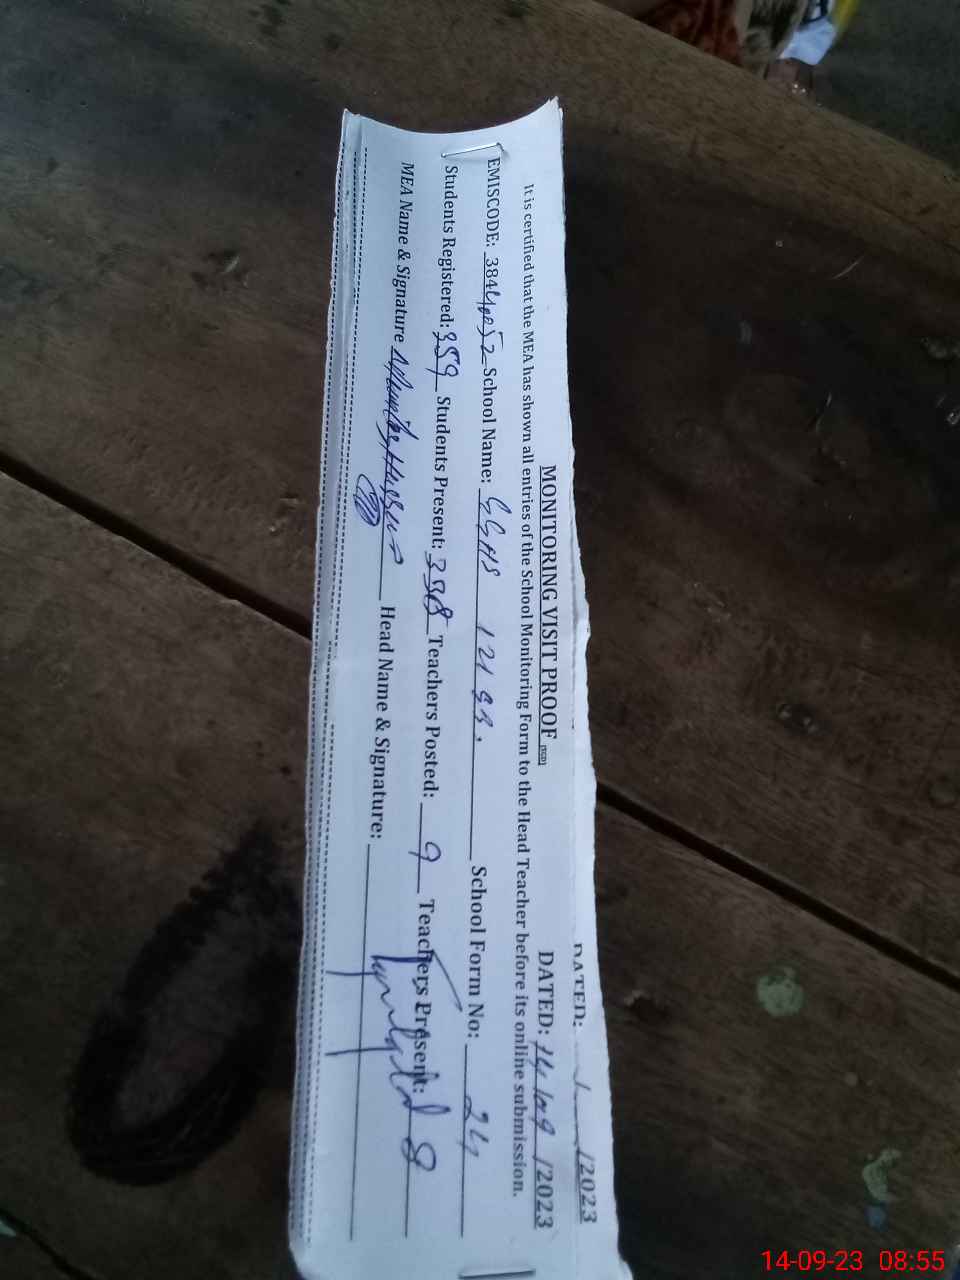 DATED: /2023
MONITORING VISIT PROOF DATED: 14/09/2023
It is certified that the MEA has shown all entries of the School Monitoring Form to the Head Teacher before its online submission.
EMISCODE: 38440052 School Name: GGHS 121 SB. School Form No: 24
Students Registered: 359 Students Present: Teachers Posted: 9 Teachers Present: 8
MEA Name & Signature Head Name & Signature:
14-09-23 08:55